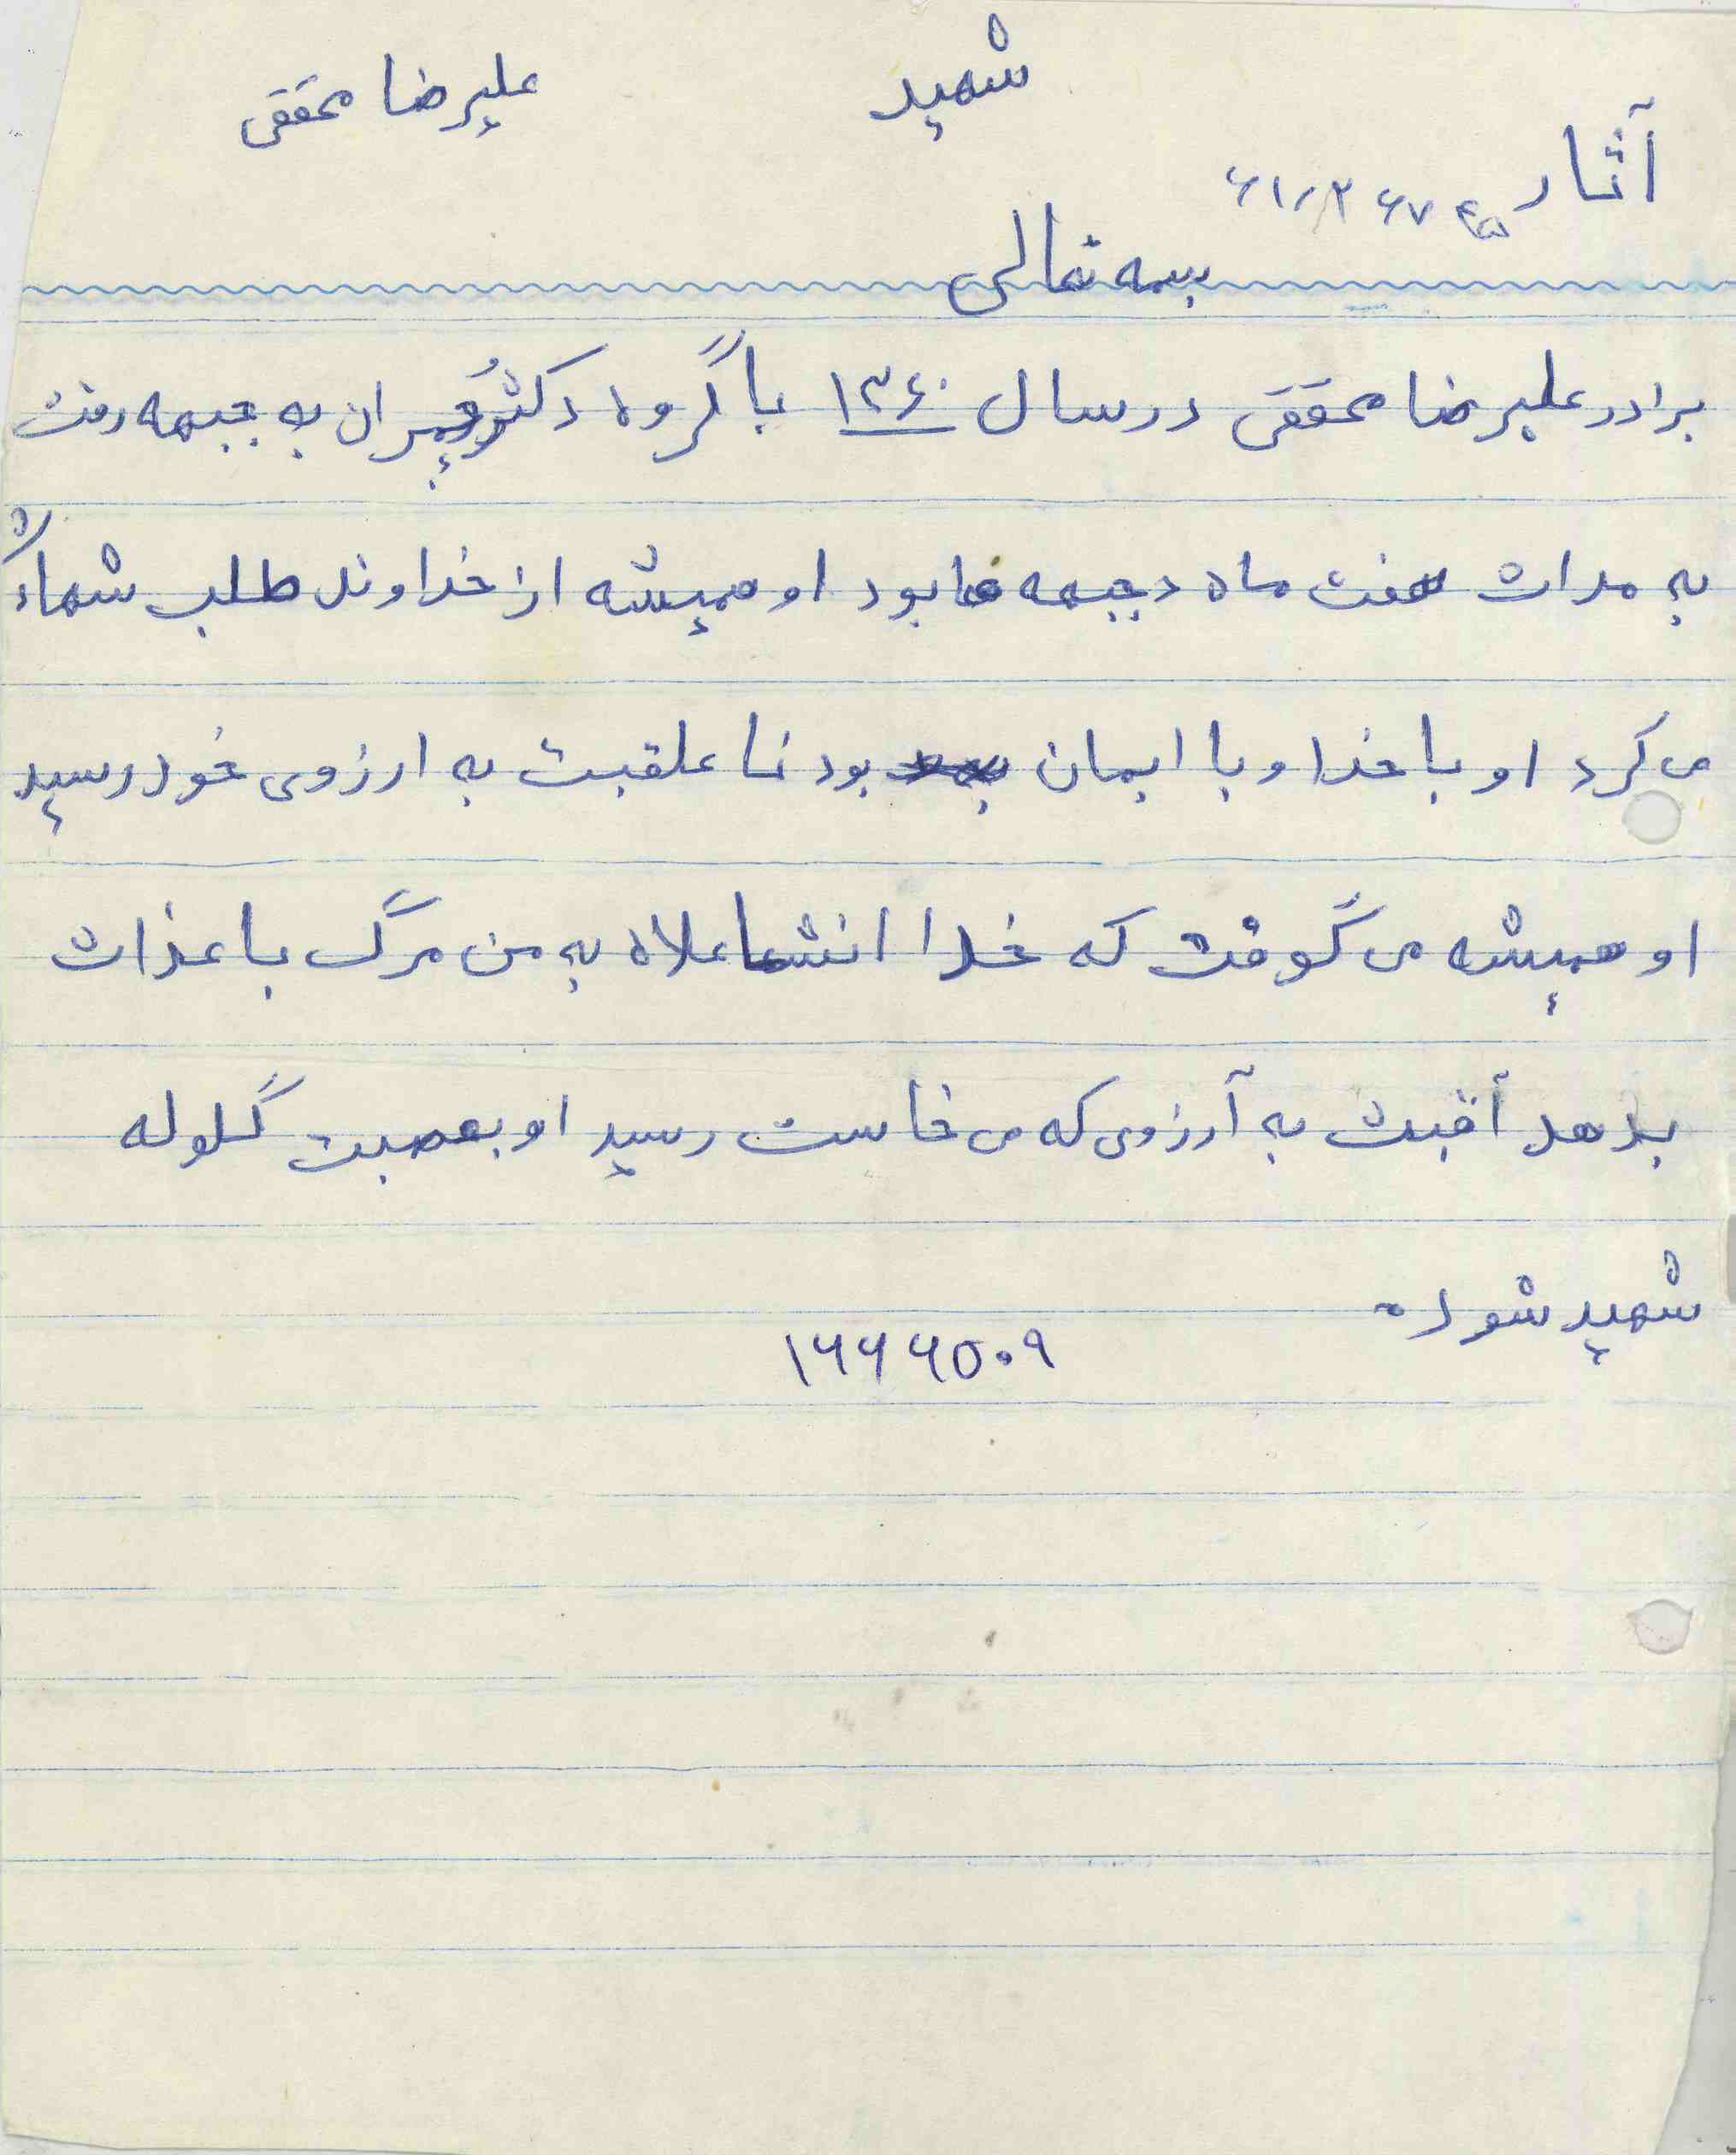 شهید علیرضا محققی
آثار
بسمه تعالی
برادر علیرضا محققی در سال ۱۳۶۰ با گروه دکتر چمران به جبهه رفت
به مدات هفت ماه د جبهه ها بود او همیشه از خداوند طلب شهادت
می کرد او با خدا و با ایمان بود تا علقبت به ارزوی خود رسید
او همیشه می گوفت که خدا انشاعلاه به من مرگ با عذات
بدهد أقبت به آرزوی که می خاست رسید او بعصبت گلوله
شهید شود
۱۶۶۶۵۰۹